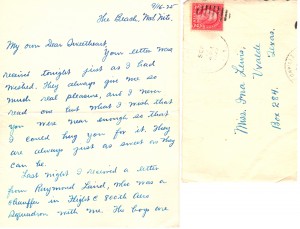 9/16-25
The Beach, Mal Nib.
My own Dear Sweetheart
Your letter was
received tonight just as I had
wished. They always give me so
much real pleasure, and I never
read one but what I wish that
you were near enough so that
I could hug you for it. They
are always just as sweet as they
can be.
Last night I received a letter
from Raymond Laird, who was a
chauffer in Flight C 800th Aero
Squadron with me. The boys are
Miss Ina Lewis,
Uvalde
Texas,
Box 284.